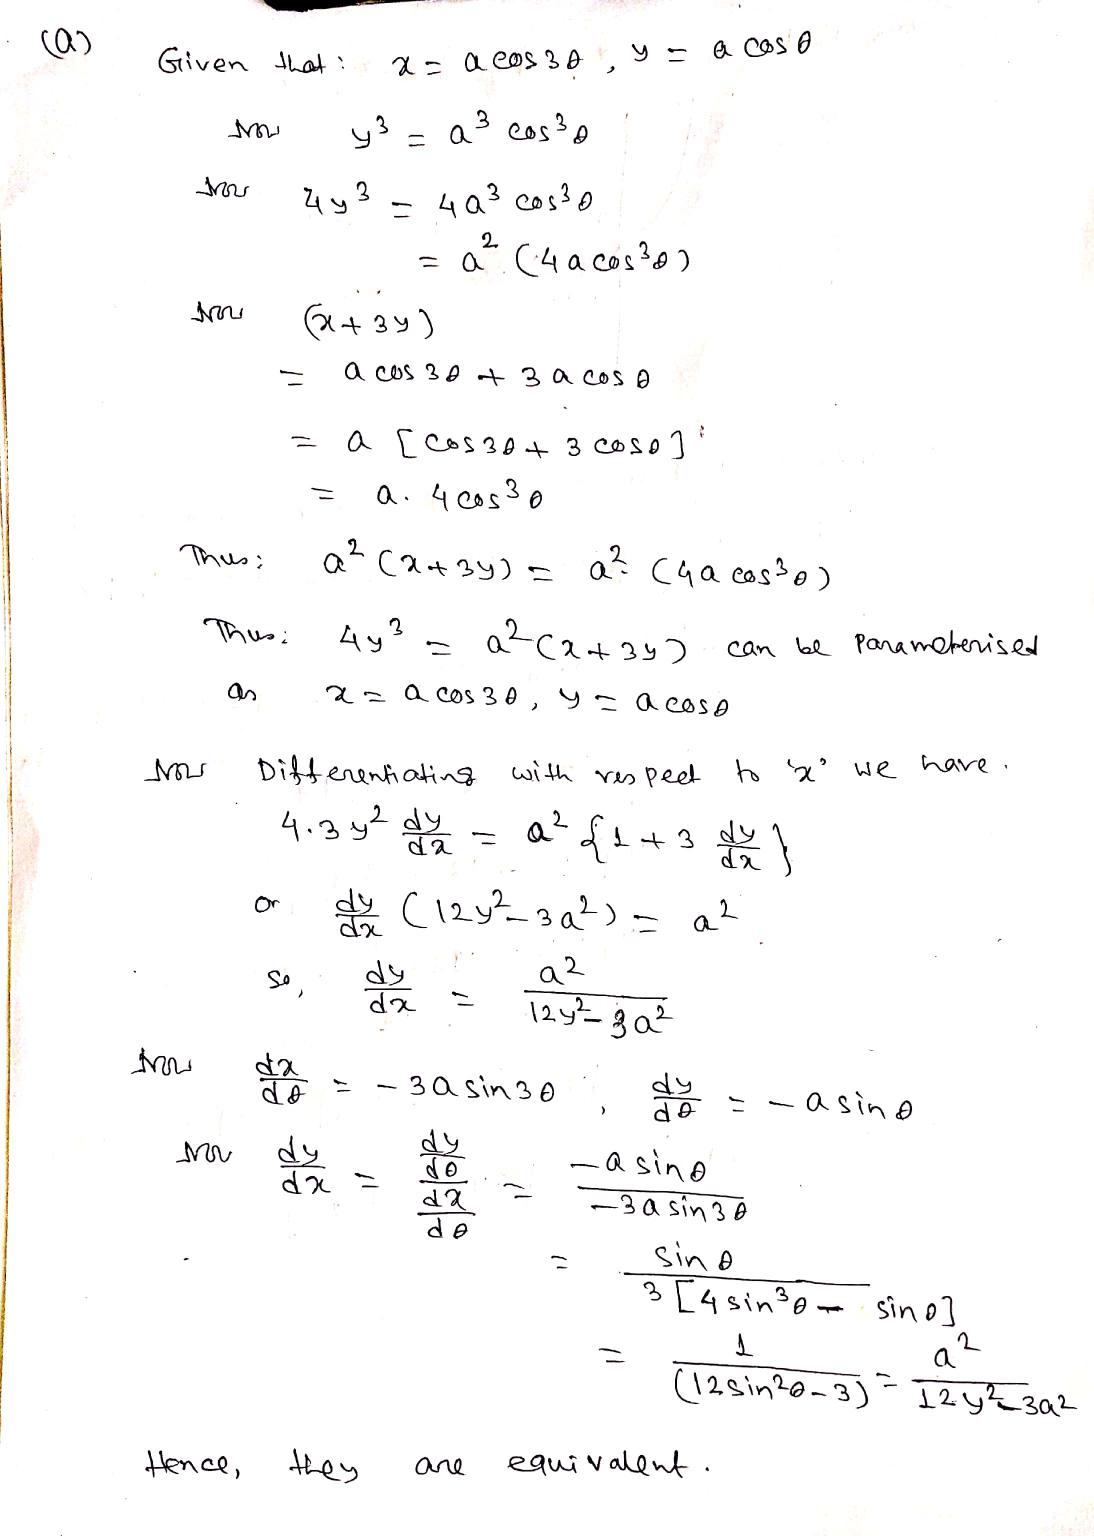 (a) Given that: x = a cos 3θ , y = a cos θ
Now y³ = a³ cos³θ
Now 4y³ = 4a³ cos³θ
= a² (4 a cos³θ)
Now (x + 3y)
= a cos 3θ + 3 a cos θ
= a [cos 3θ + 3 cos θ]
= a. 4 cos³θ
Thus: a² (x + 3y) = a² (4a cos³θ)
Thus: 4y³ = a² (x + 3y) can be Parameterised
as x = a cos 3θ, y = a cos θ
Now Differentiating with respect to 'x' we have.
4.3 y² dy/dx = a² {1 + 3 dy/dx}
or dy/dx (12y² – 3a²) = a²
So, dy/dx = a²/(12y² – 3a²)
Now dx/dθ = – 3a sin 3θ , dy/dθ = – a sin θ
Now dy/dx = (dy/dθ)/(dx/dθ) = (– a sin θ)/(– 3a sin 3θ)
= sin θ/(3 [4 sin³θ – sin θ])
= 1/(12 sin²θ – 3) = a²/(12y² – 3a²)
Hence, they are equivalent.